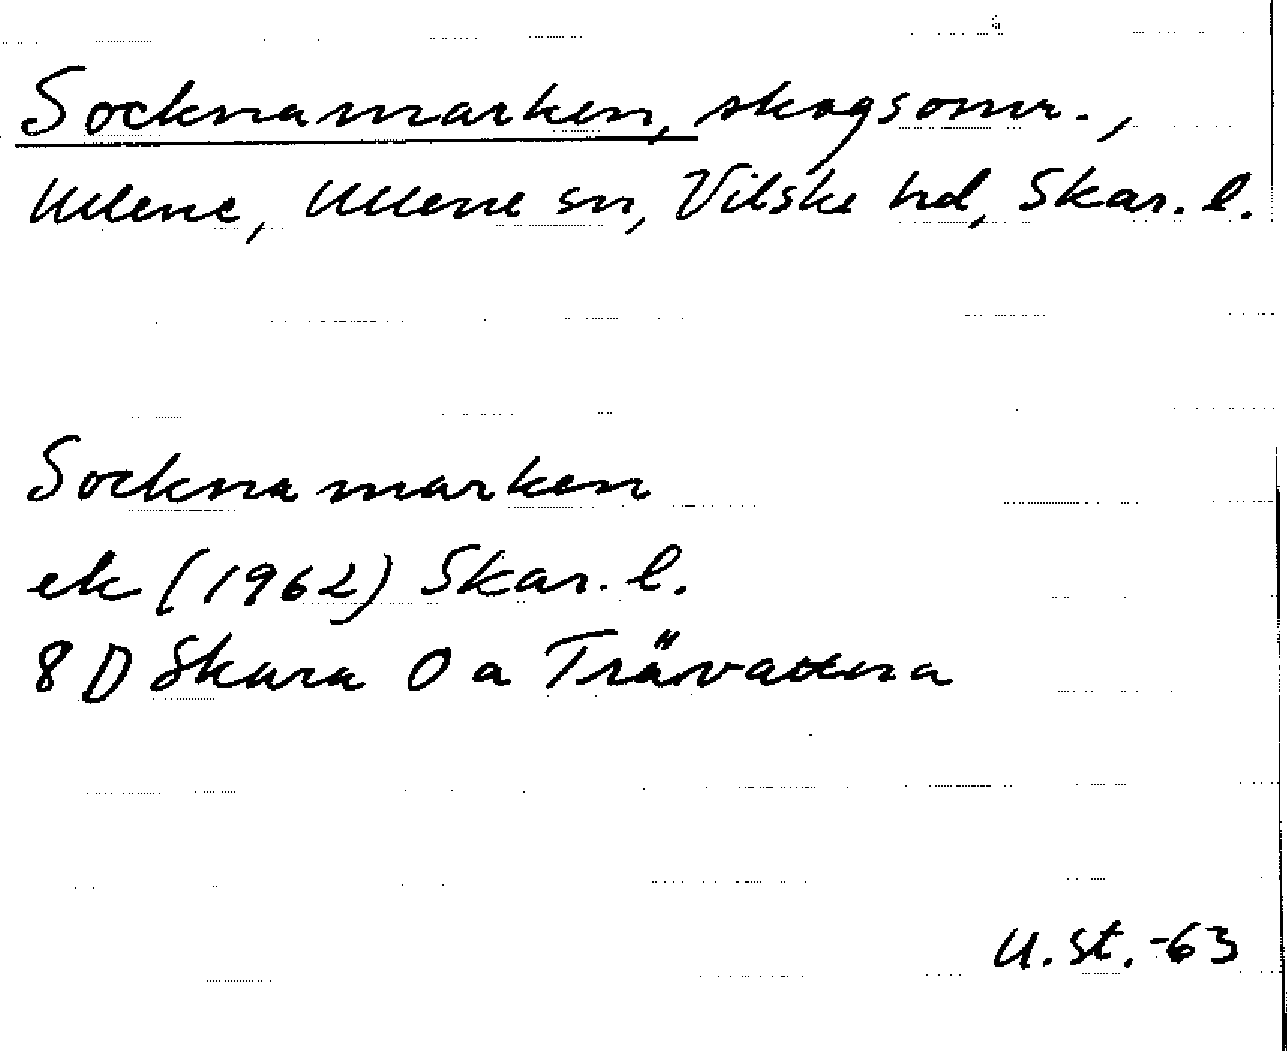 Socknamarken, skogsomr.,
Ullene, Ullene sn, Vilske hd, Skar. l.
Socknamarken
ek (1962) Skar. l.
8 D Skara 0 a Trävattna
U. St. -63